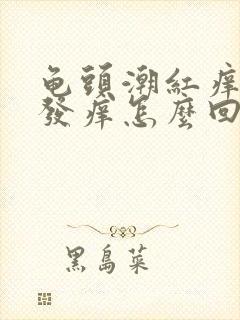 龟頭潮紅痒
發痒怎麽回
黑島菜